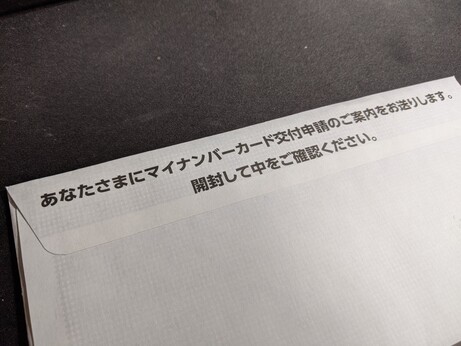 あなたさまにマイナンバーカード交付申請のご案内をお送りします。
開封して中をご確認ください。